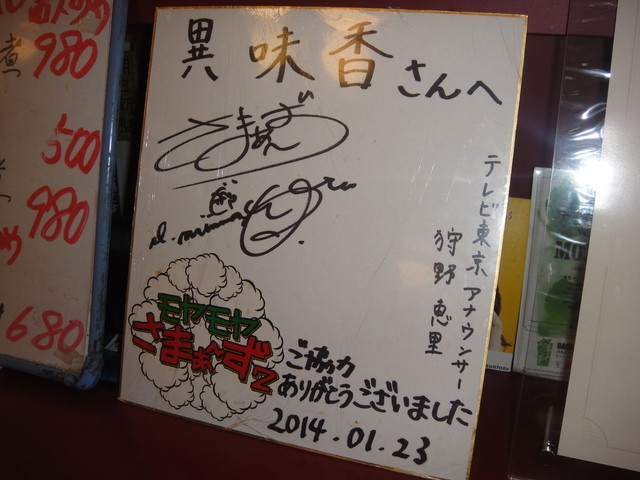 異味香さんへ
さまぁず
テレビ東京 アナウンサー
狩野 恵里
モヤモヤ
さまぁ~ず2
ご協力
ありがとうございました
2014.01.23
980
500
980
680